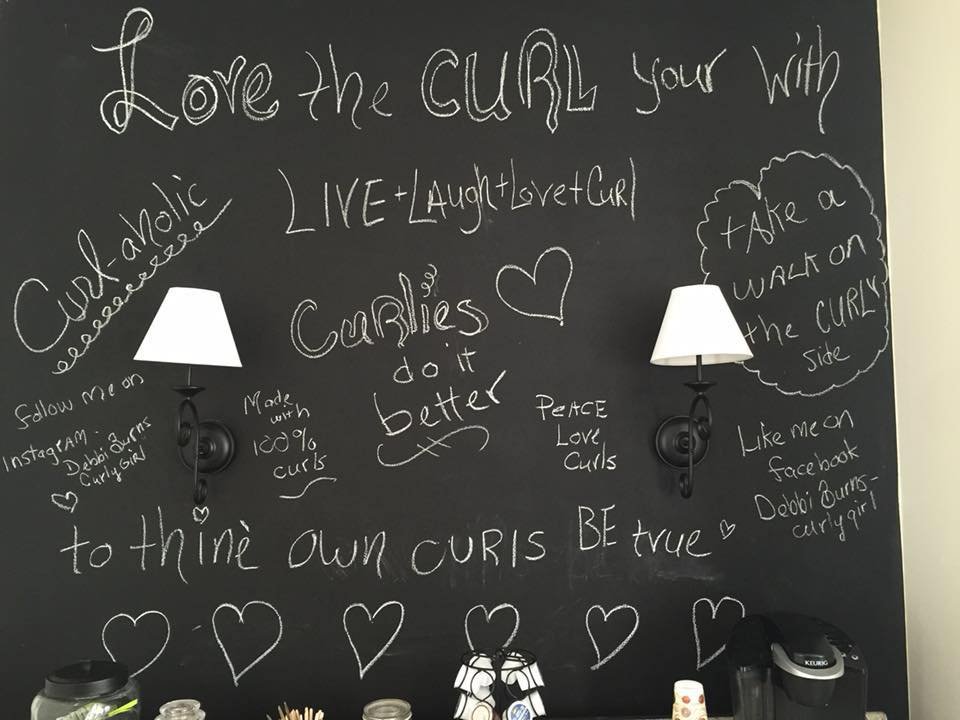 Love the CURL your with
LIVE + LAugh + Love + CuRl
Curl-aholic
take a
WALK ON
the CURLY
side
CuRlies
do it
better
follow me on
InstagRAM -
Debbi Burns
CurlyGIRl
Made
with
100%
curls
PEACE
Love
Curls
Like me on
facebook
Debbi Burns-
curlygirl
to thine own CURlS BE true
KEURIG